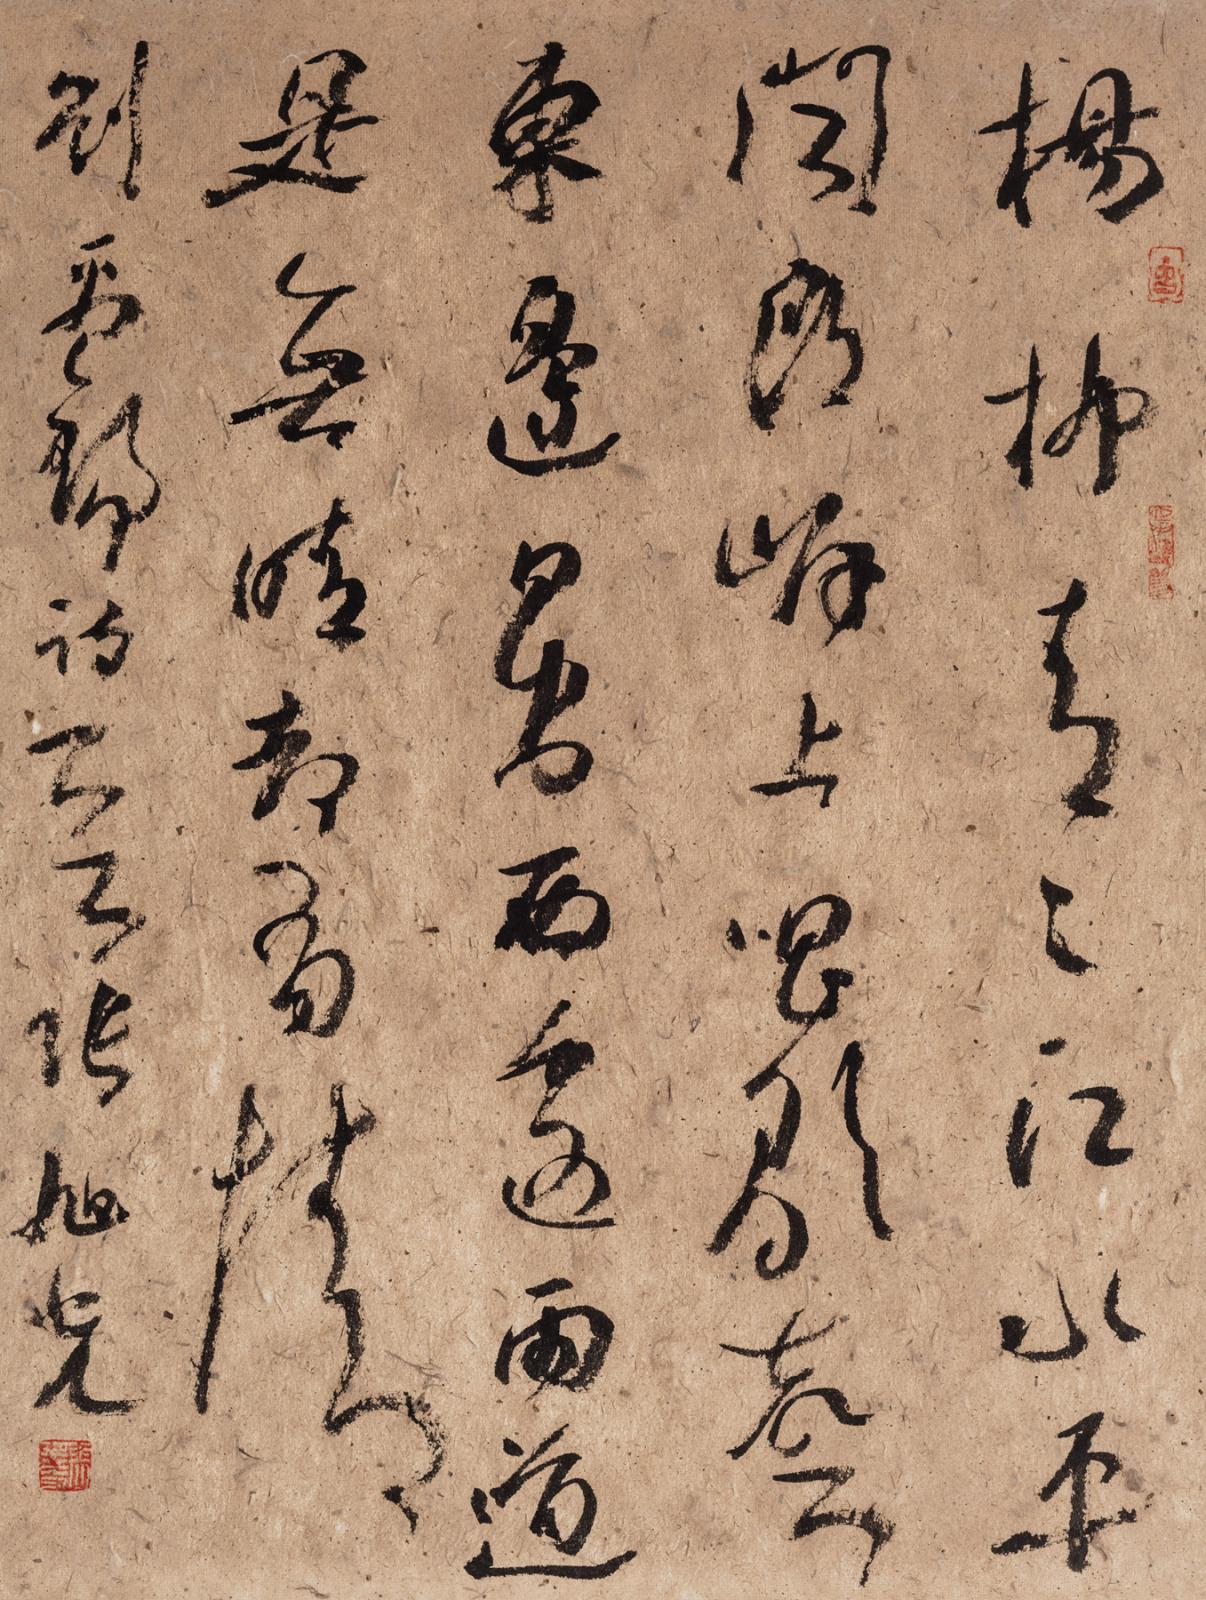 楊柳青々江水平
聞郎岸上唱歌聲
東邊日出西邊雨道
是無晴却有情
劉禹錫詩 張旭光